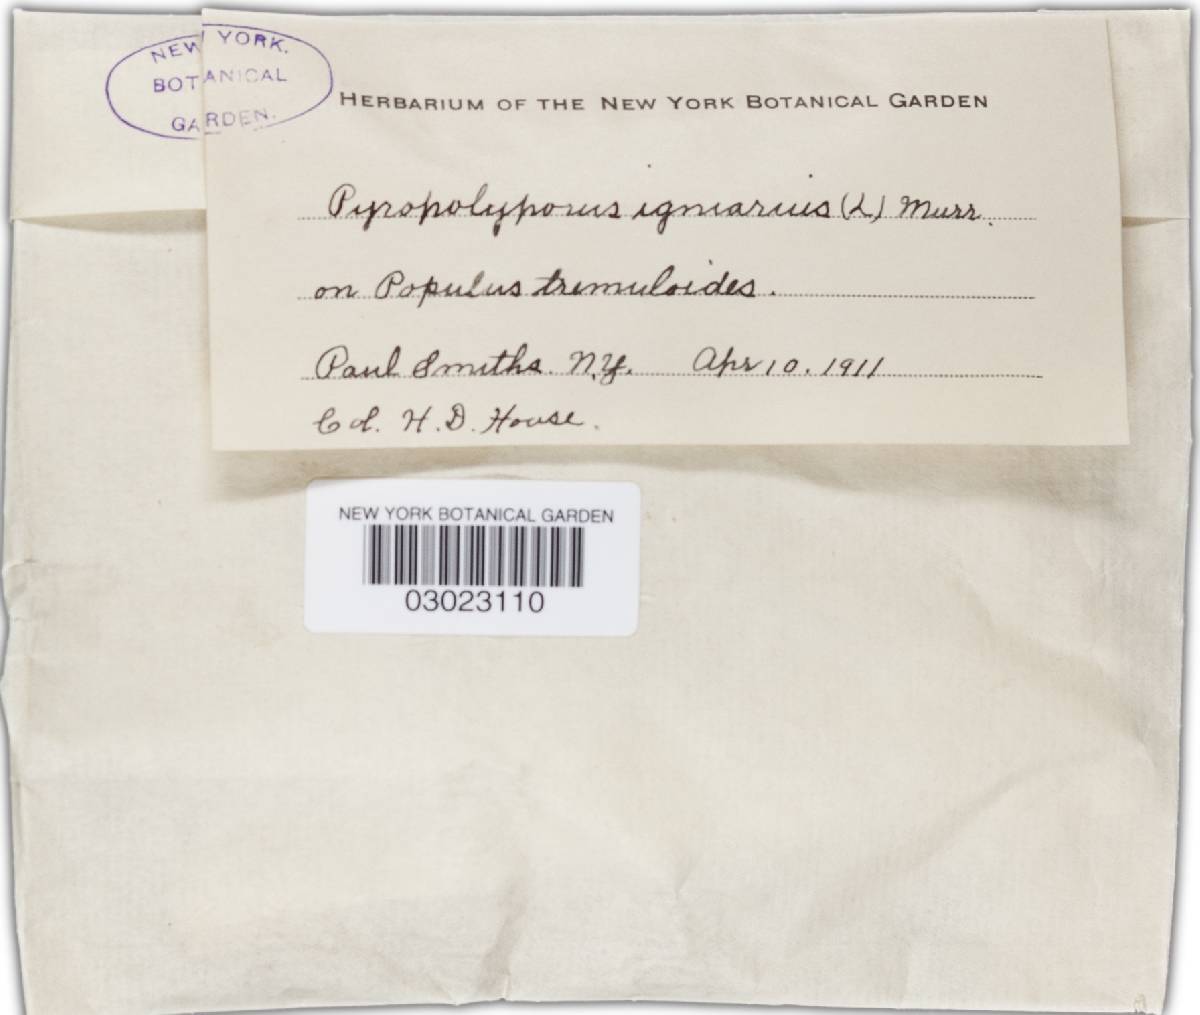 NEW YORK.
BOTANICAL
GARDEN.
HERBARIUM OF THE NEW YORK BOTANICAL GARDEN
Pyropolyporus igniarius (L) Murr.
on Populus tremuloides.
Paul Smiths. N.Y. Apr 10. 1911
Col. H. D. House.
NEW YORK BOTANICAL GARDEN
03023110